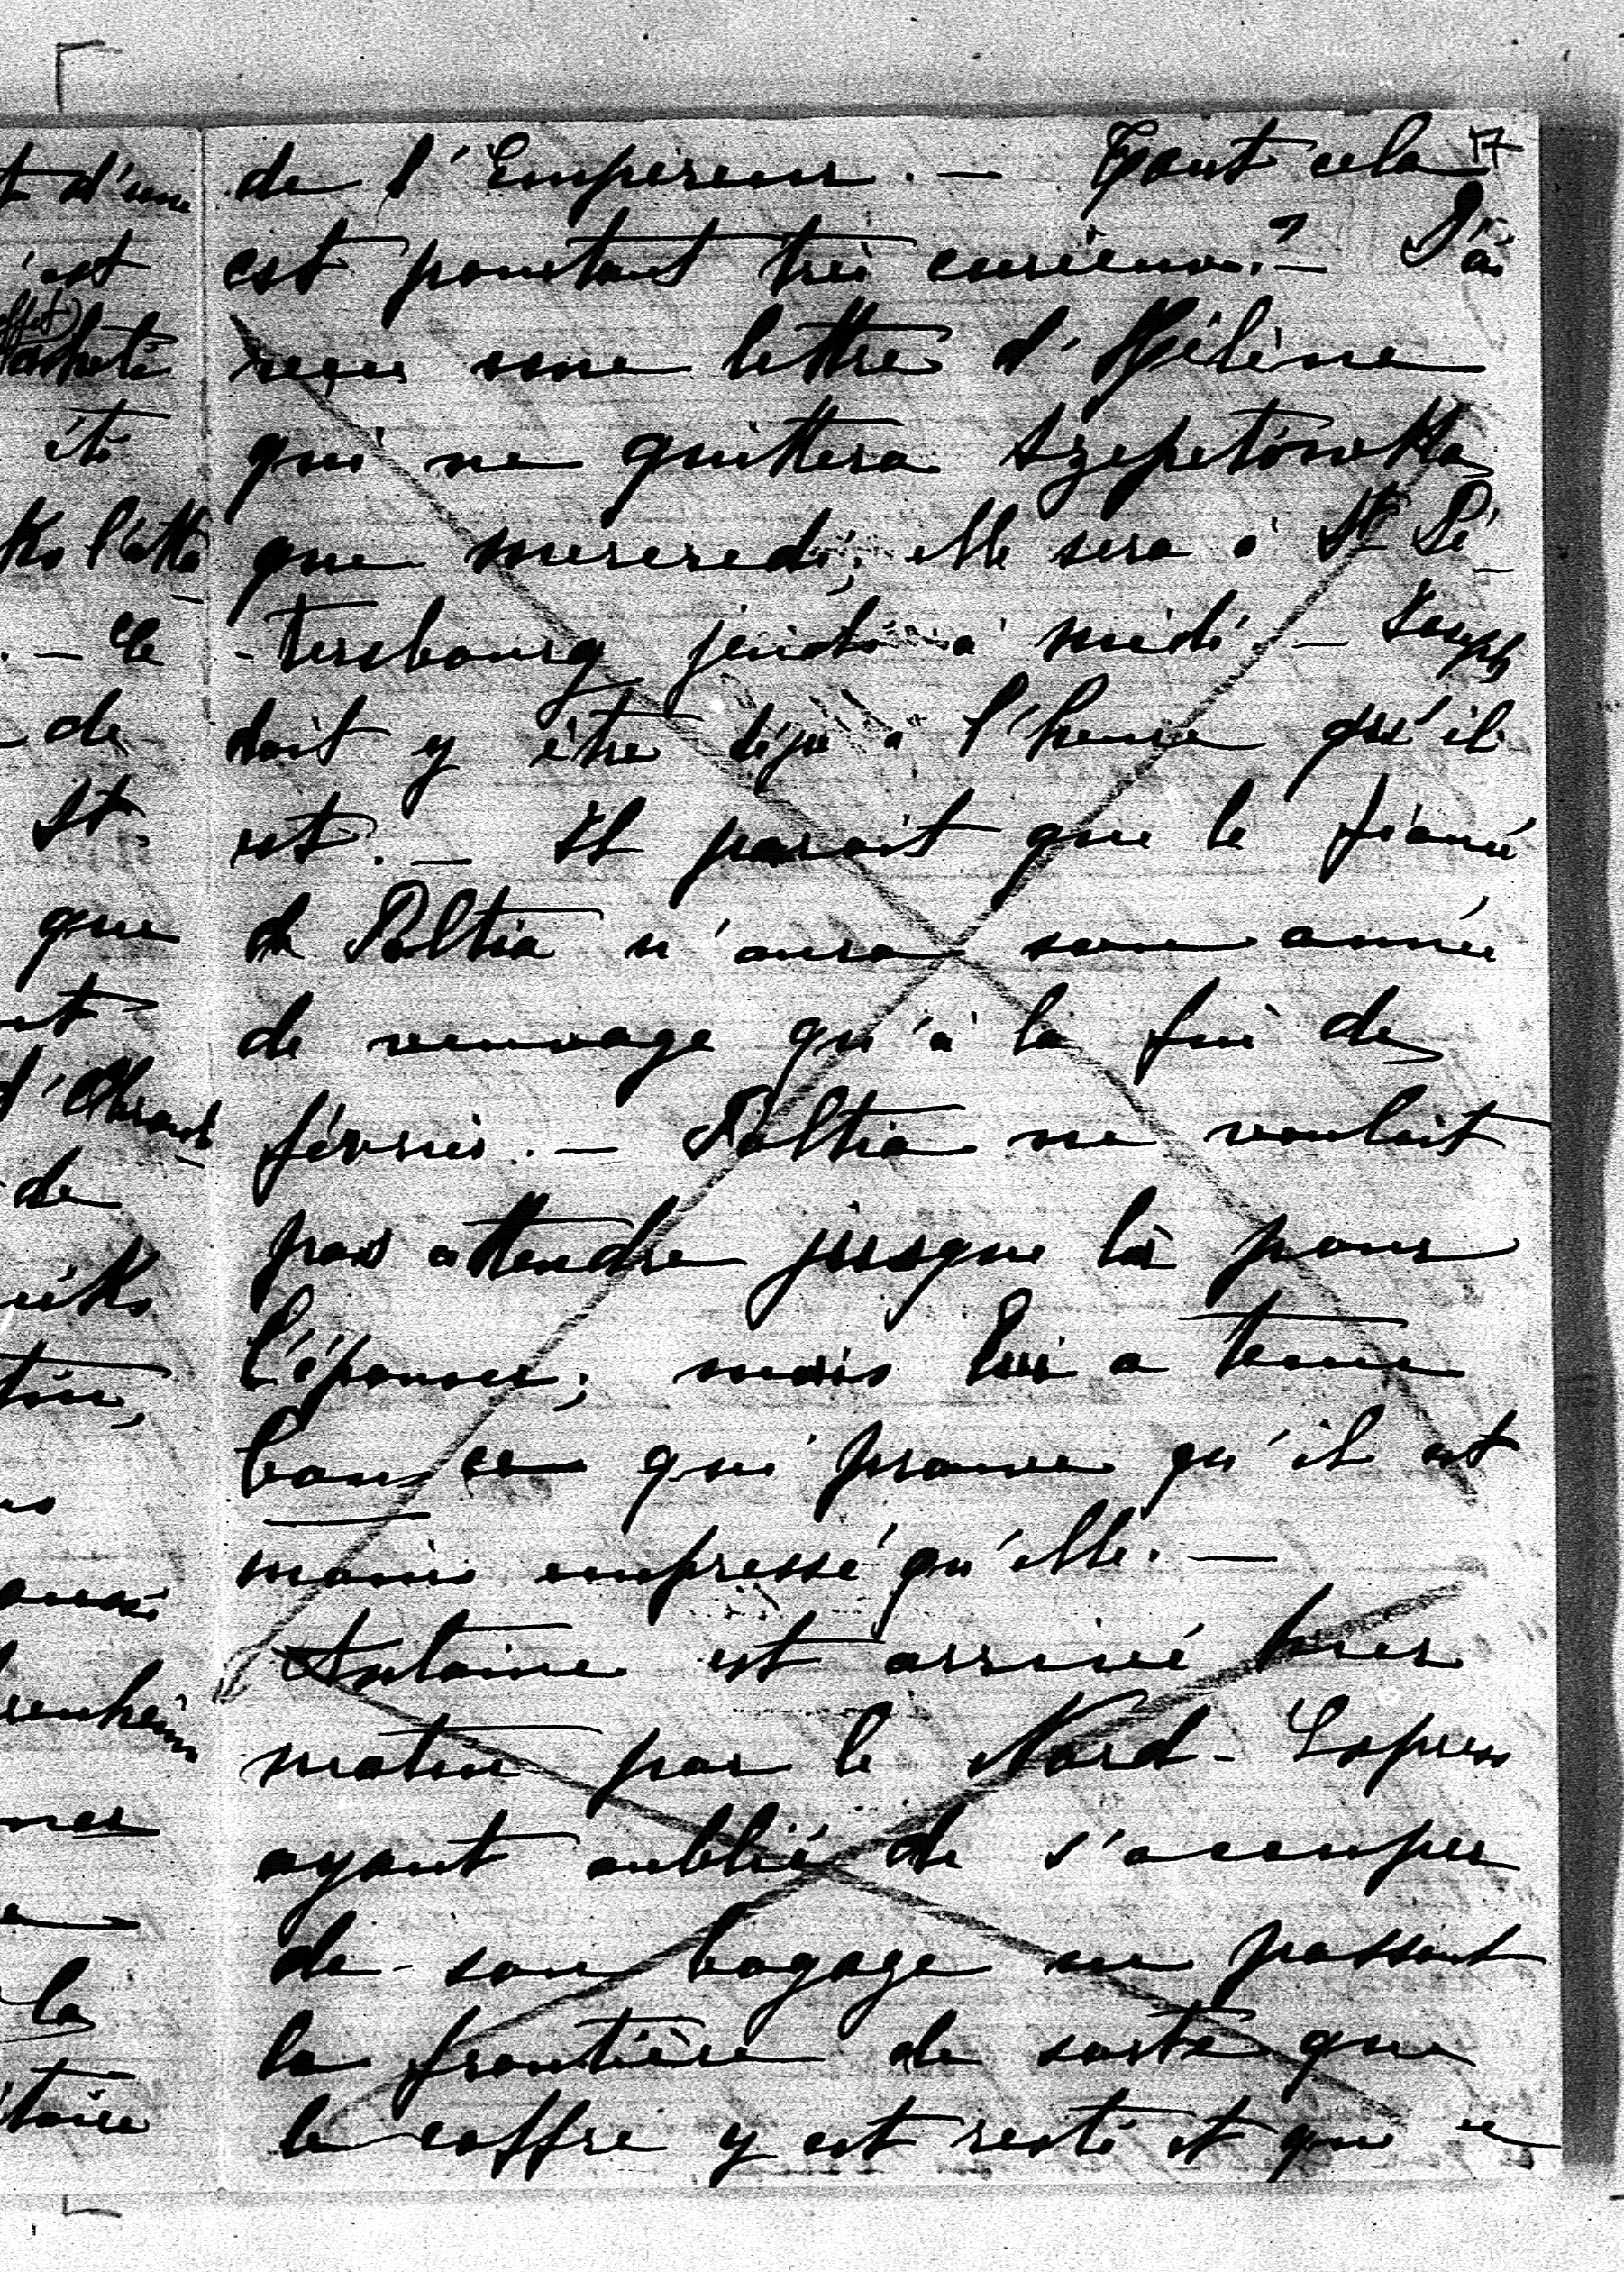 17
de l'Empereur. — Tout cela
est pourtant très curieux. — J'ai
reçu une lettre d'Hélène
qui ne quittera Szepetowka
que mercredi; elle sera à St. Pé-
-tersbourg jeudi à midi. — Joseph
doit y être déjà à l'heure qu'il
est. — Il parait que le fiancé
de Paltia n'aura son année
de veuvage qu'à la fin de
février. — Paltia ne voulait
pas attendre jusque là pour
l'épouser; mais lui a tenu
bon ce qui prouve qu'il est
moins empressé qu'elle. —
Antoine est arrivé hier
matin par le Nord-Express
ayant oublié de s'occuper
de son bagage en passant
la frontière de sorte que
le coffre y est resté et que
t d'une
'est
effet
acheté
été
Ko l'atta
. — Ce
de
St.
que
et
de
aussi
la